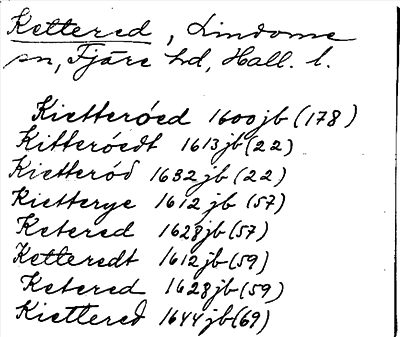 Kettered, Lindome
sn, Fjäre hd, Hall. l.
Kietteróed 1600jb (178)
Kitteróedt 1613jb (22)
Kietteród 1632jb (22)
Kietterye 1612jb (57)
Ketered 1628jb (57)
Ketteredt 1612jb (59)
Ketered 1628jb (59)
Kiettered 1644jb (69)